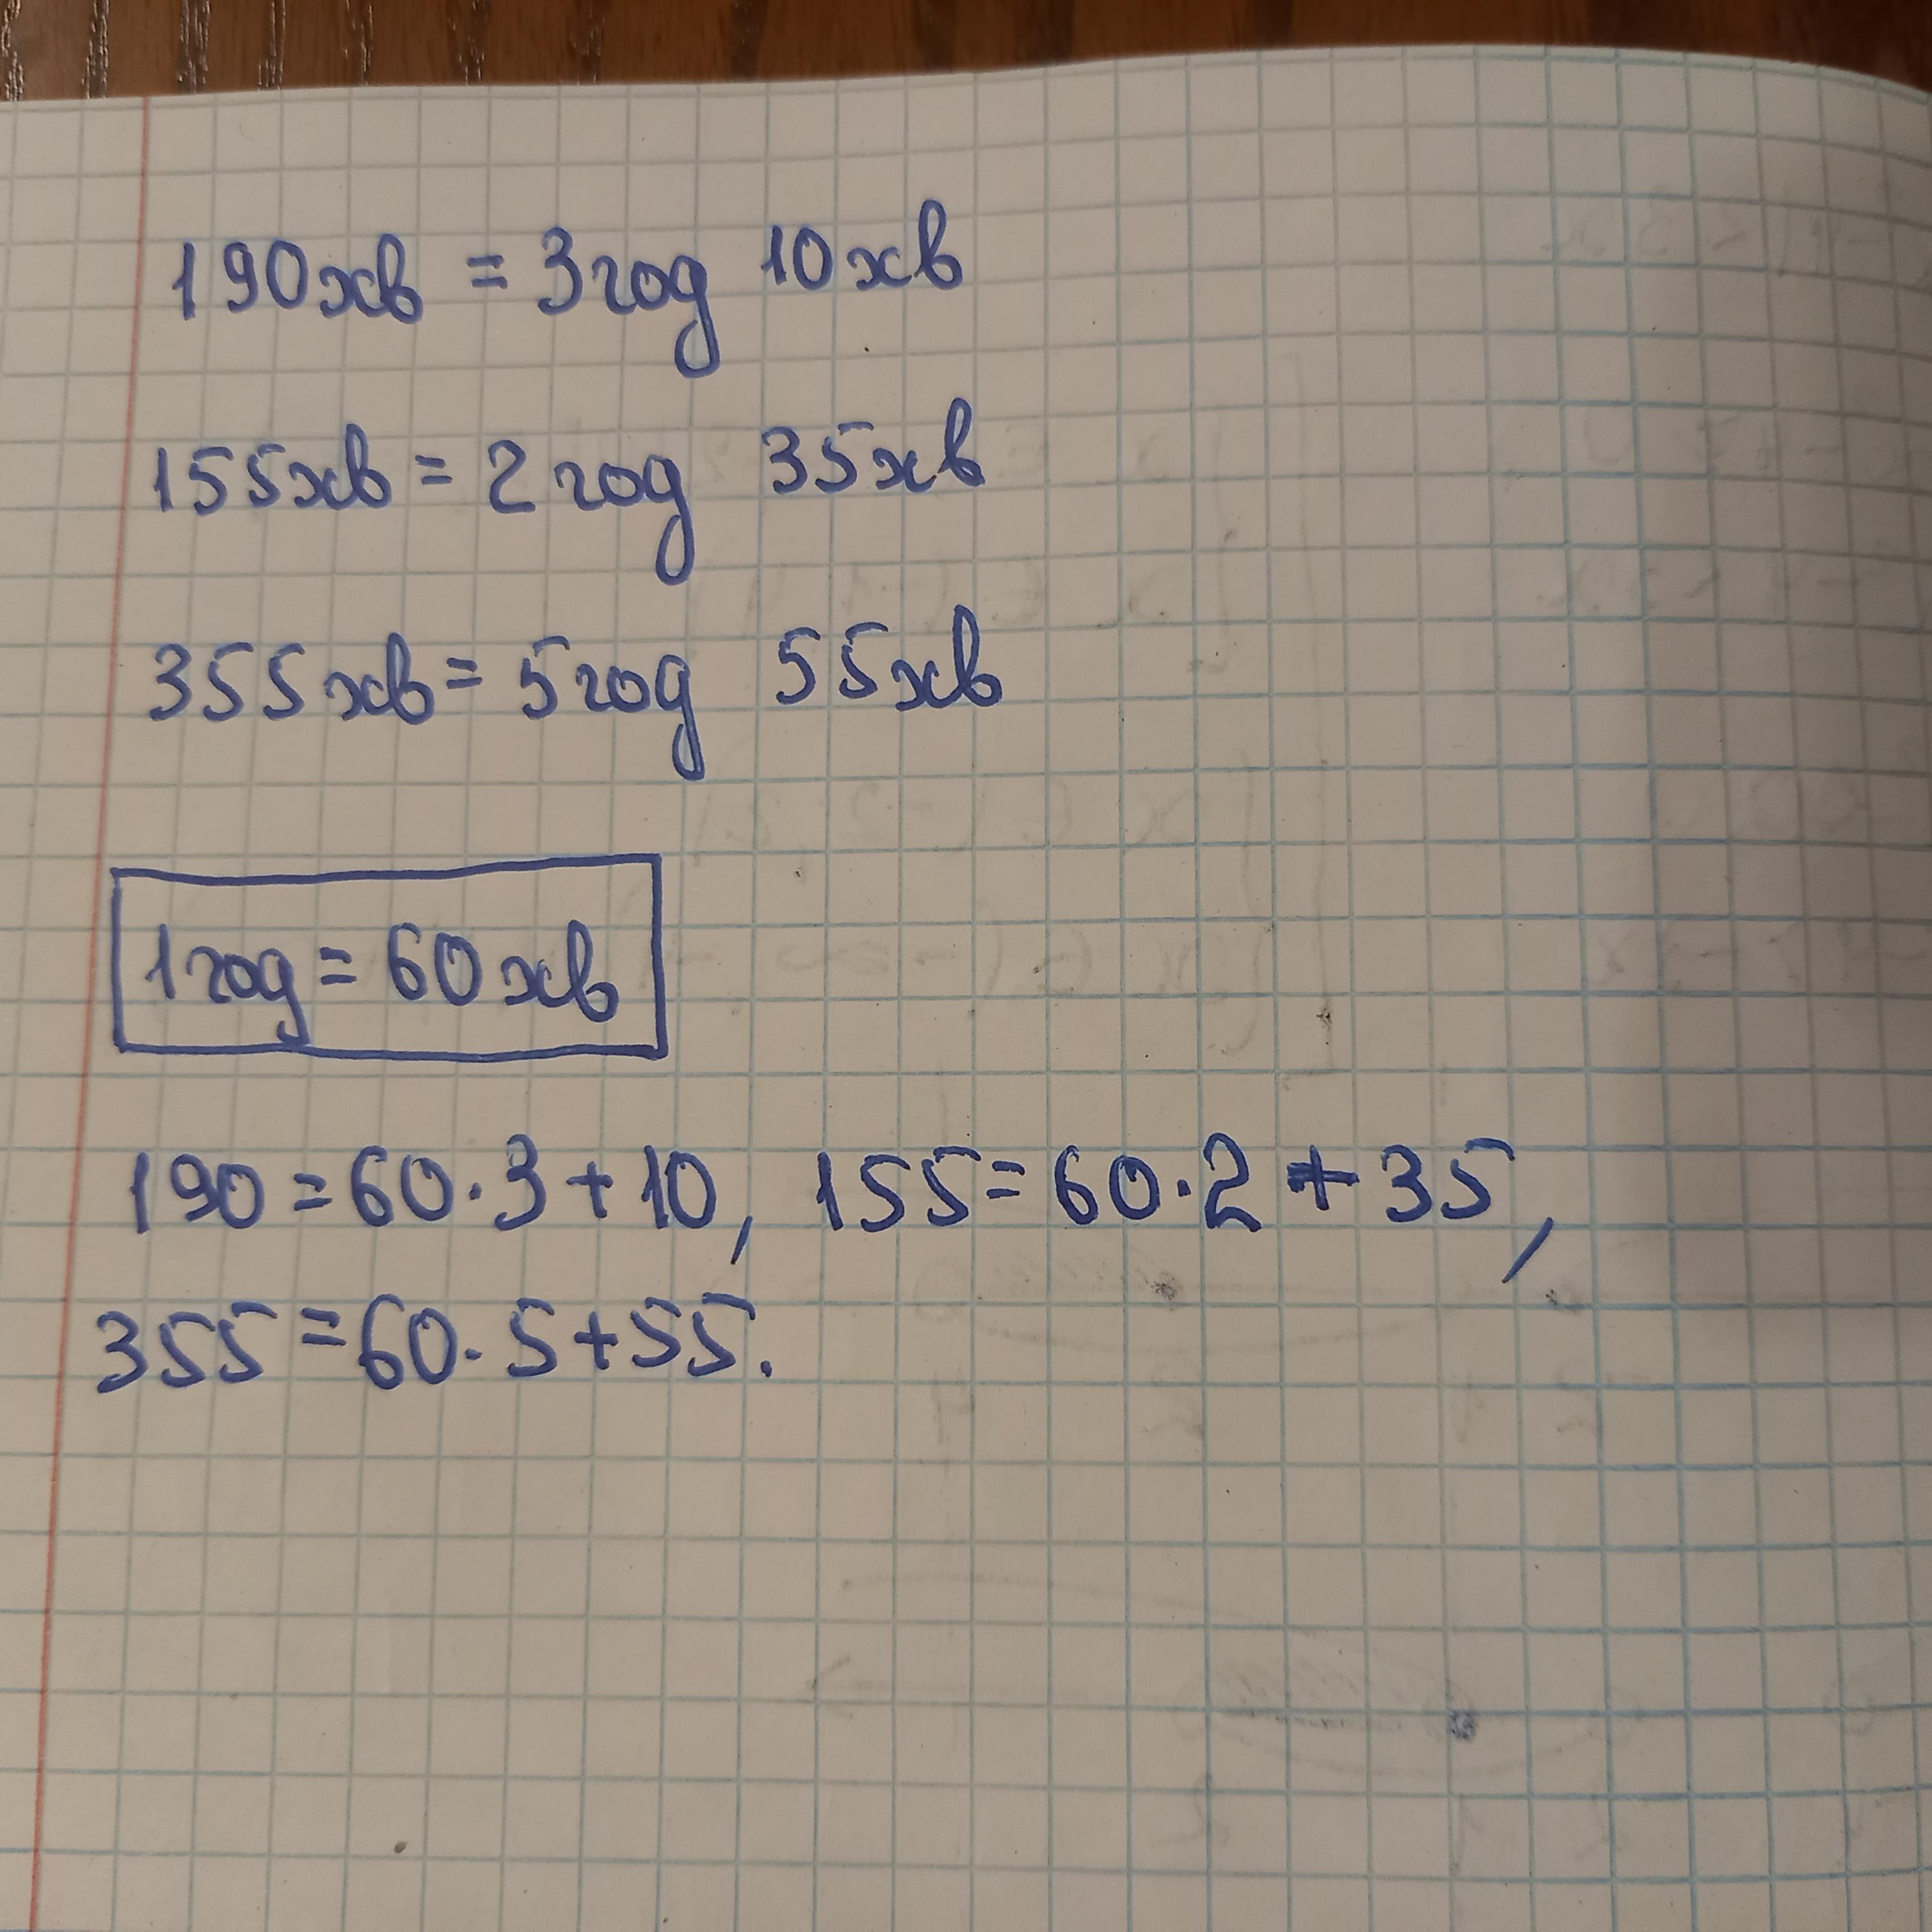 190хв = 3год 10хв
155хв = 2 год 35хв
355хв = 5год 55хв
1год = 60хв
190 = 60·3+10, 155 = 60·2 + 35,
355 = 60·5+55.